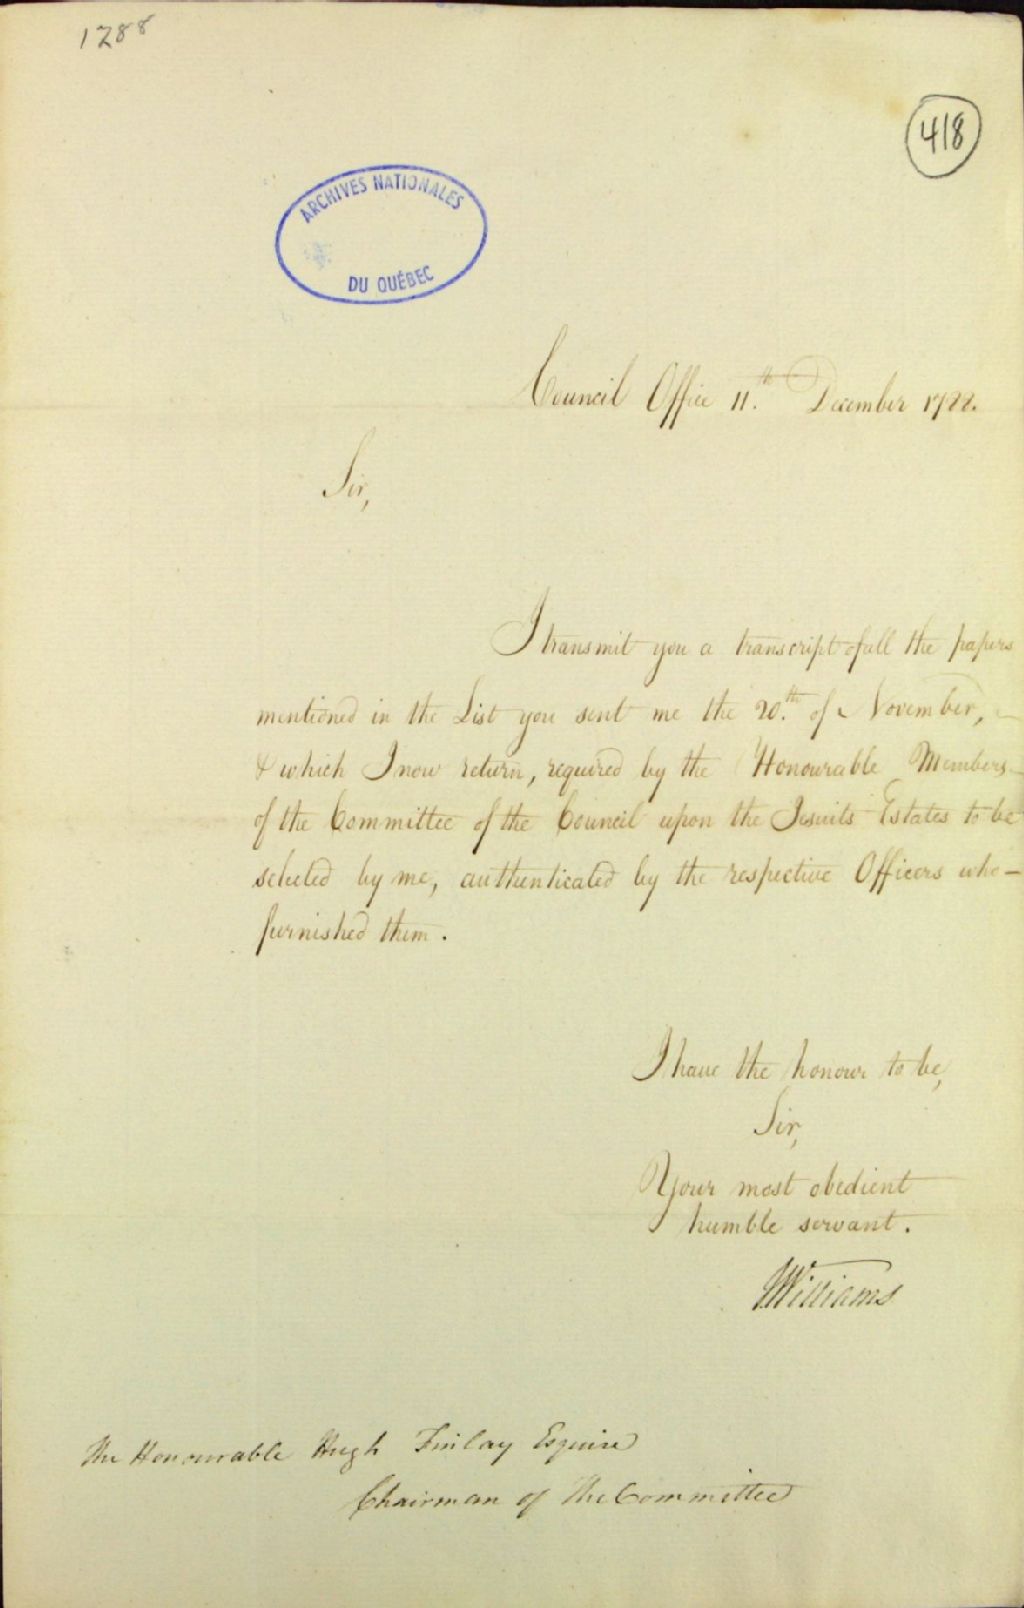 1288
418
ARCHIVES NATIONALES
DU QUÉBEC
Council Office 11.th December 1788.
Sir,
I transmit you a transcript of all the papers
mentioned in the List you sent me the 20.th of November,
& which I now return, required by the Honourable Members
of the Committee of the Council upon the Jesuits Estates to be
selected by me, authenticated by the respective Officers who –
furnished them.
I have the honour to be,
Sir,
Your most obedient
humble servant.
JWilliams
The Honourable Hugh Finlay Esquire
Chairman of The Committee